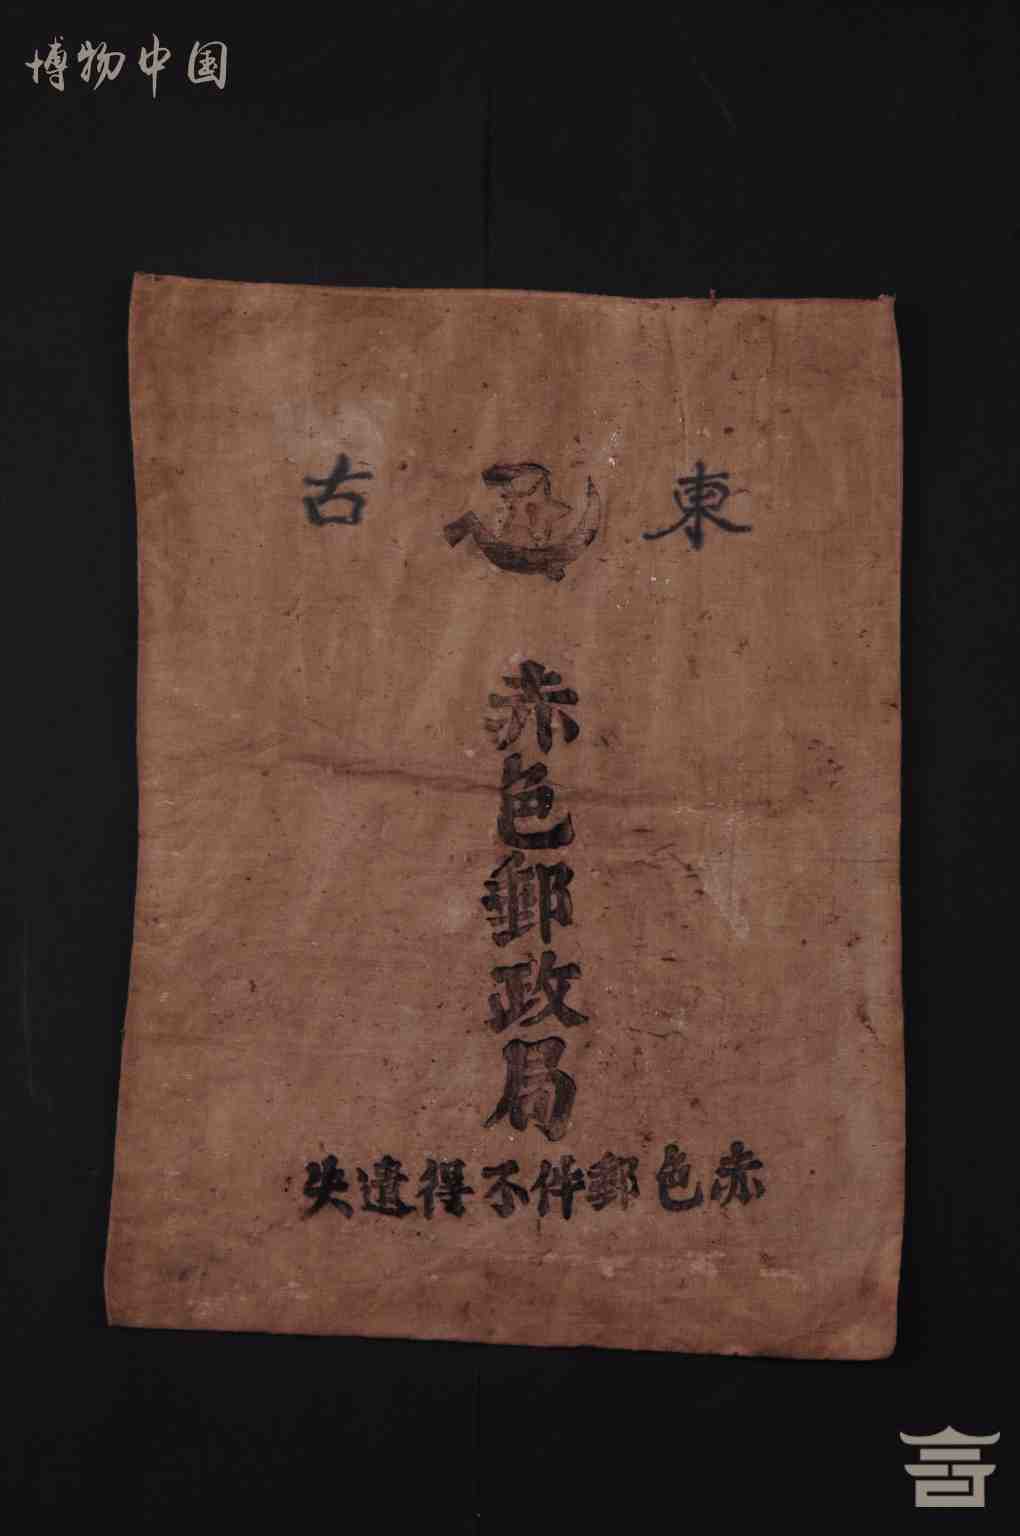 博物中国
東古
赤色郵政局
赤色郵件不得遺失